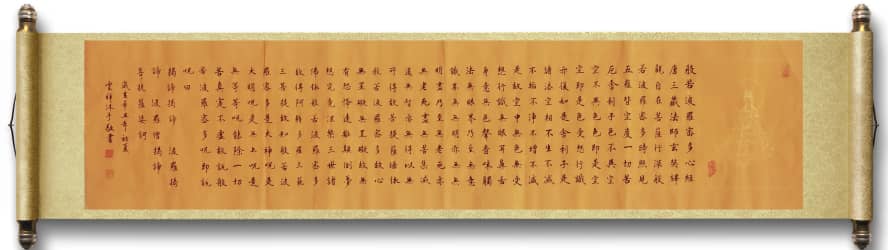 般若波羅蜜多心經
唐三藏法師玄奘譯
觀自在菩薩行深般
若波羅蜜多時照見
五蘊皆空度一切苦
厄舍利子色不異空
空不異色色即是空
空即是色受想行識
亦復如是舍利子是
諸法空相不生不滅
不垢不淨不增不減
是故空中無色無受
想行識無眼耳鼻舌
身意無色聲香味觸
法無眼界乃至無意
識界無無明亦無無
明盡乃至無老死亦
無老死盡無苦集滅
道無智亦無得以無
所得故菩提薩埵依
般若波羅蜜多故心
無罣礙無罣礙故無
有恐怖遠離顛倒夢
想究竟涅槃三世諸
佛依般若波羅蜜多
故得阿耨多羅三藐
三菩提故知般若波
羅蜜多是大神呪是
大明呪是無上呪是
無等等呪能除一切
苦真實不虛故說般
若波羅蜜多呪即說
呪曰
揭諦揭諦 波羅揭
諦 波羅僧揭諦
菩提薩婆訶
辛丑年初夏
沐手敬書